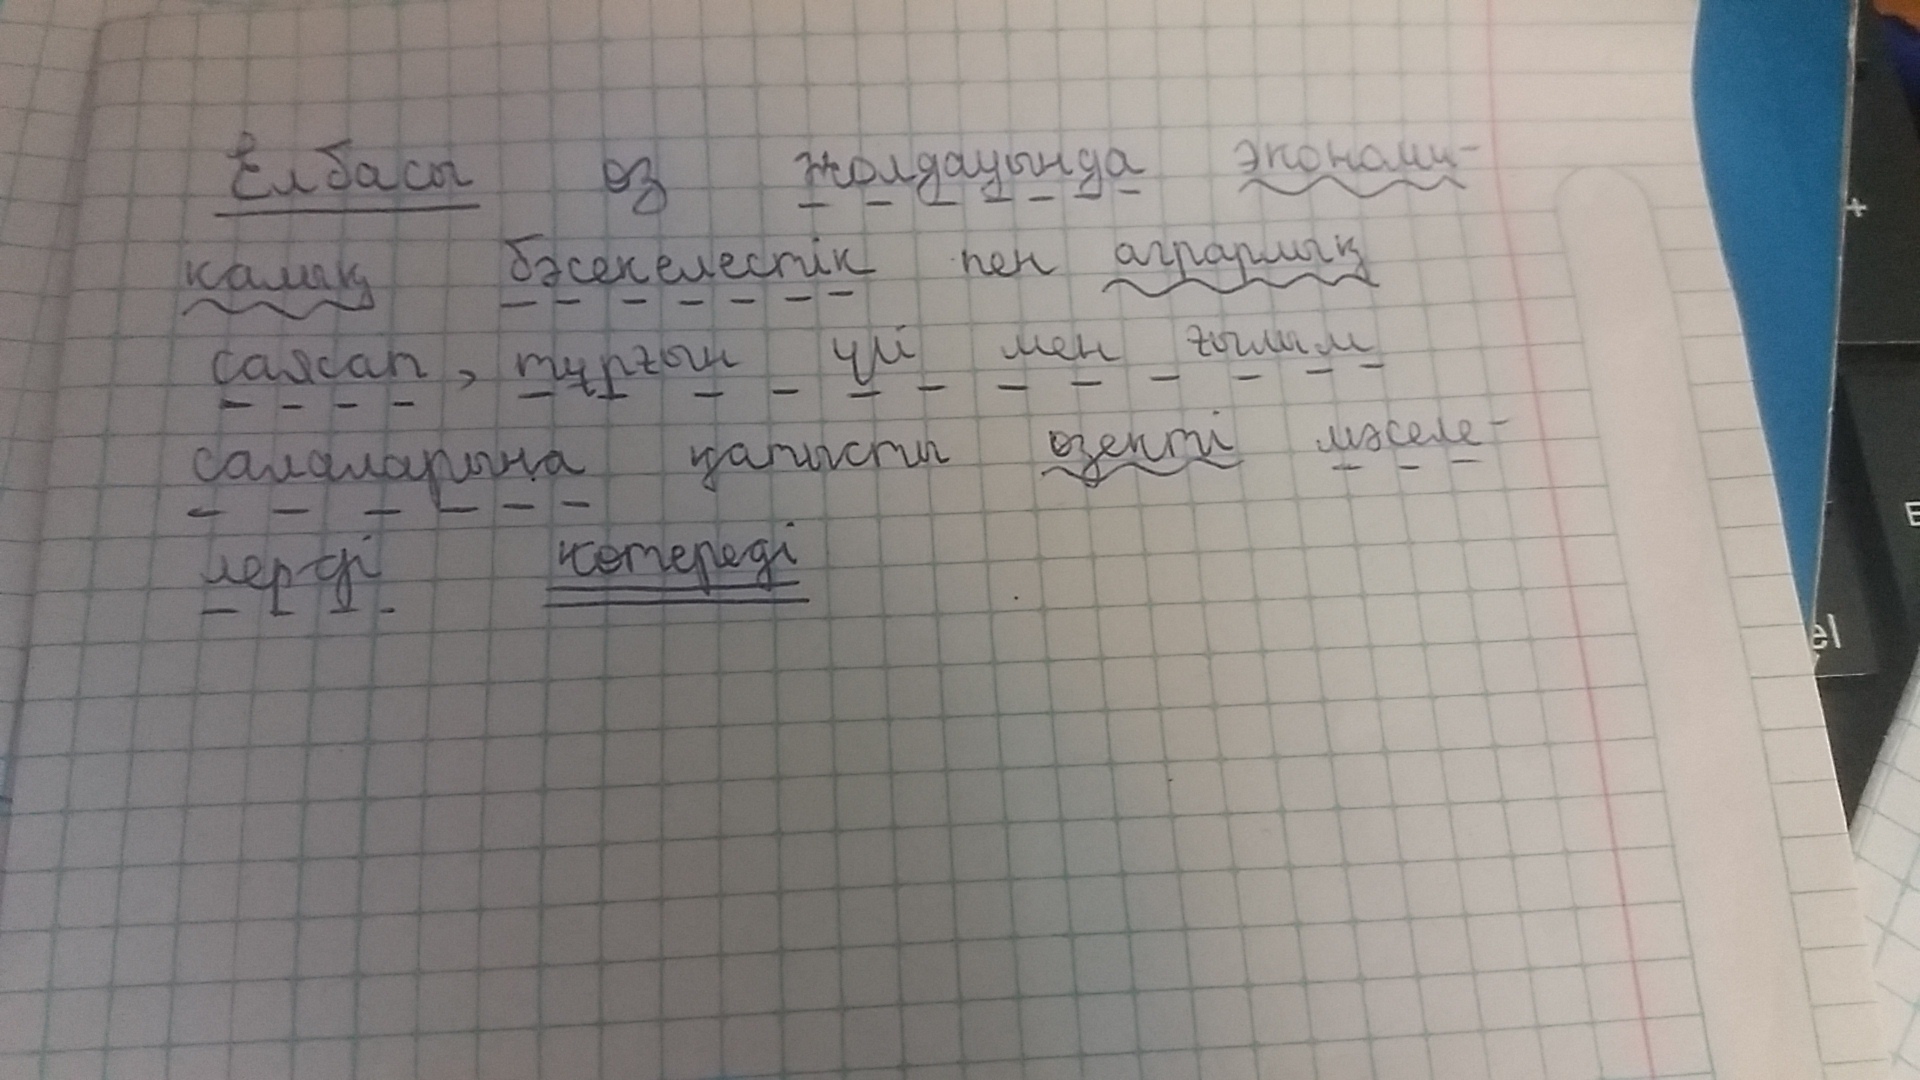 Елбасы өз жолдауында экономи-
калық бәсекелестік пен аграрлық
саясат, тұрғын үй мен ғылым
салаларына қатысты өзекті мәселе-
лерді көтереді
+
E
el